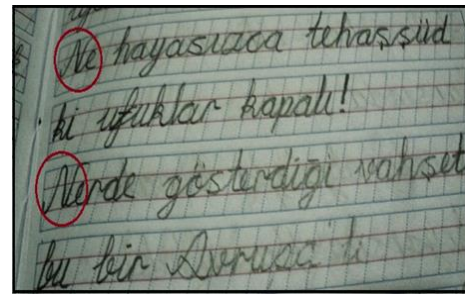 Ne hayasızca tehaşşüd
ki ufuklar kapalı!
Nerde gösterdiği vahşet
bu bir Avrupa'lı